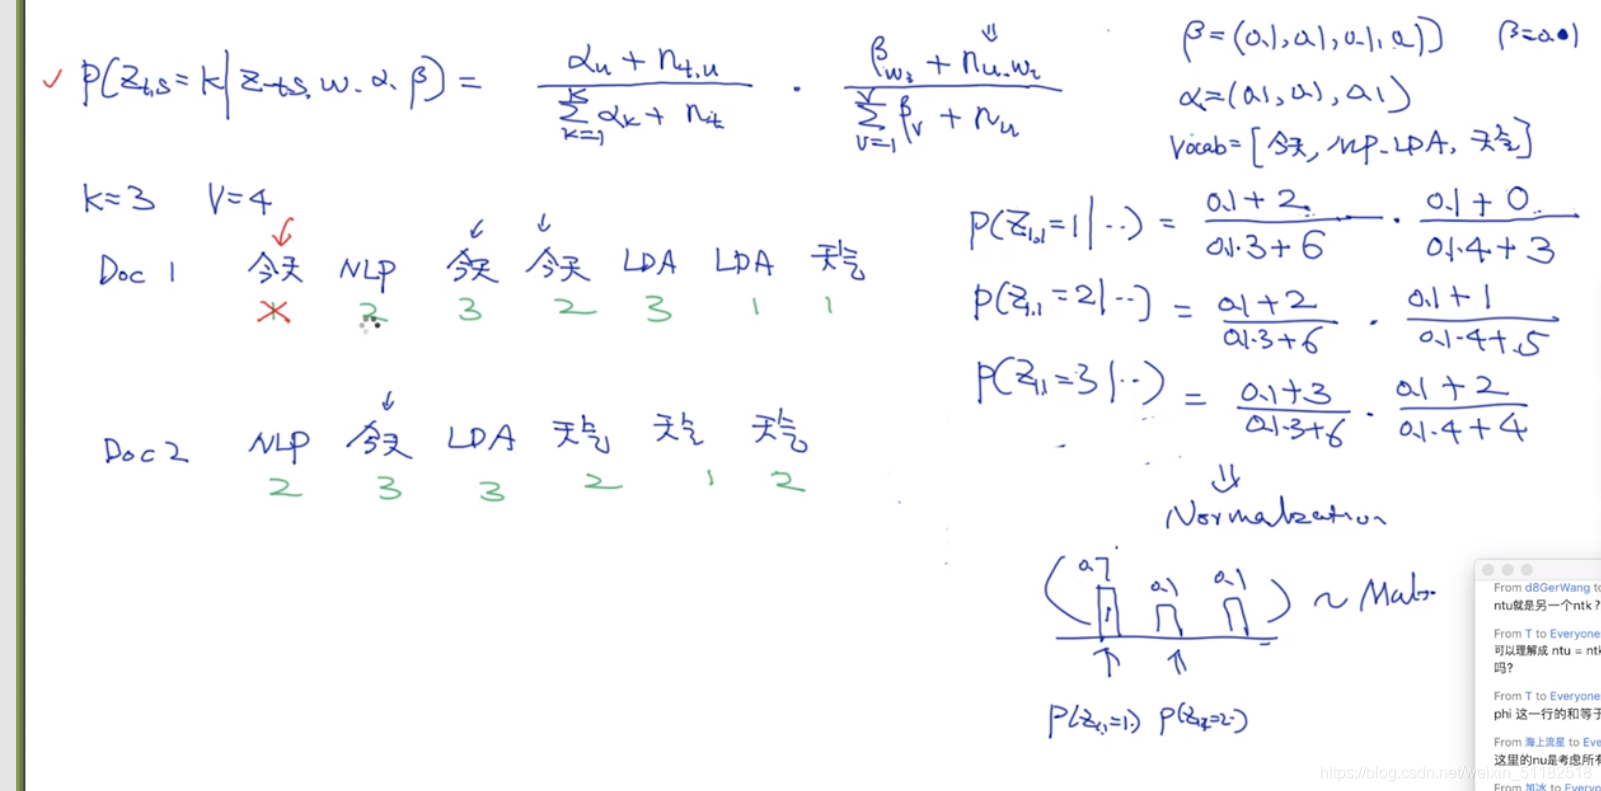 P(Zt,s = k | Z-ts, w, α, β) = αu + nt,u / Σ k=1 K αk + nit · βws + nu,wz / Σ v=1 V βv + nu
β = (0.1, 0.1, 0.1, 0.1) β=0.01
α = (0.1, 0.1, 0.1)
Vocab = [今天, NLP, LDA, 天气]
k=3 V=4
Doc 1 今天 NLP 今天 今天 LDA LDA 天气
2 3 2 3 1 1
Doc 2 NLP 今天 LDA 天气 天气 天气
2 3 3 2 1 2
P(Z1,1 = 1 | ..) = 0.1 + 2 / 0.1·3 + 6 · 0.1 + 0 / 0.1·4 + 3
P(Z1,1 = 2 | ..) = 0.1 + 2 / 0.1·3 + 6 · 0.1 + 1 / 0.1·4 + 5
P(Z1,1 = 3 | ..) = 0.1 + 3 / 0.1·3 + 6 · 0.1 + 2 / 0.1·4 + 4
Normalization
(0.7 0.1 0.1) ~
P(Z1,1=1·) P(Z1,2=2·)
From d8GerWang to
ntu就是另一个ntk?
From T to Everyone
可以理解成 ntu = ntk
吗?
From T to Everyone
phi 这一行的和等于
From 海上流星 to Eve
这里的nu是考虑所有
From 加冰 to Everyo
https://blog.csdn.net/weixin_51182518